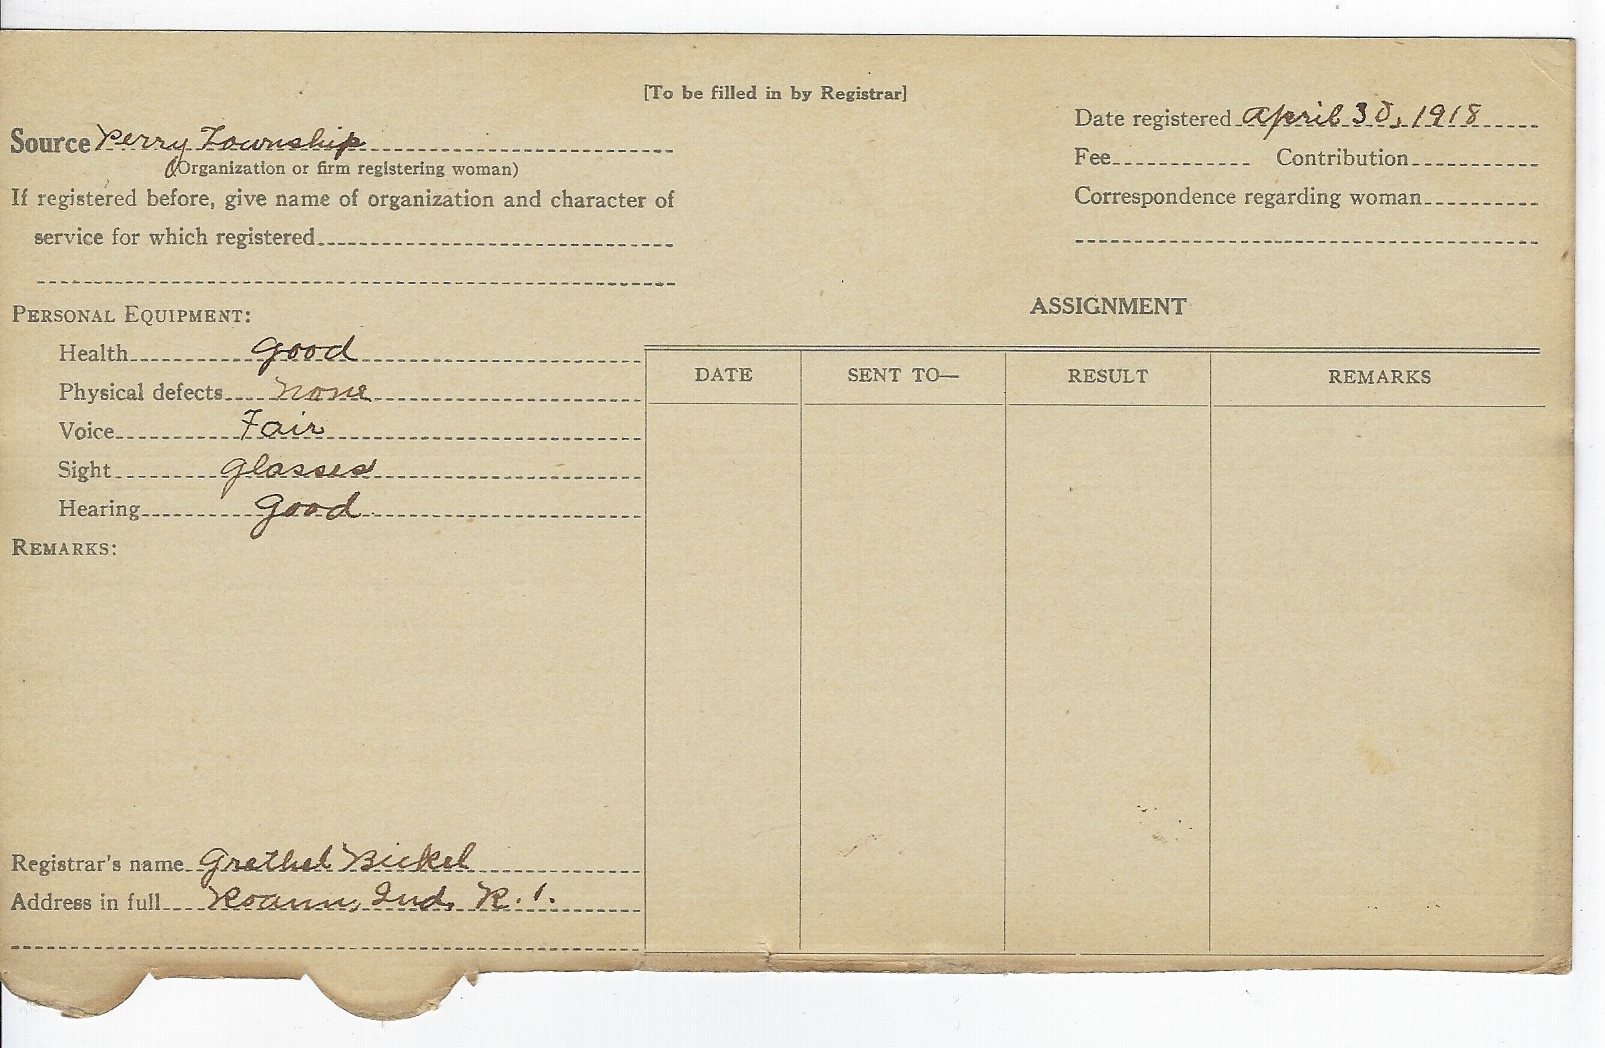 [To be filled in by Registrar]
Source Perry Township
(Organization or firm registering woman)
If registered before, give name of organization and character of
service for which registered
Date registered April 30, 1918
Fee Contribution
Correspondence regarding woman
PERSONAL EQUIPMENT:
Health Good
Physical defects None
Voice Fair
Sight Glasses
Hearing Good
REMARKS:
ASSIGNMENT
DATE SENT TO— RESULT REMARKS
Registrar's name Grethel Bickel
Address in full Roann, Ind. R. 1.